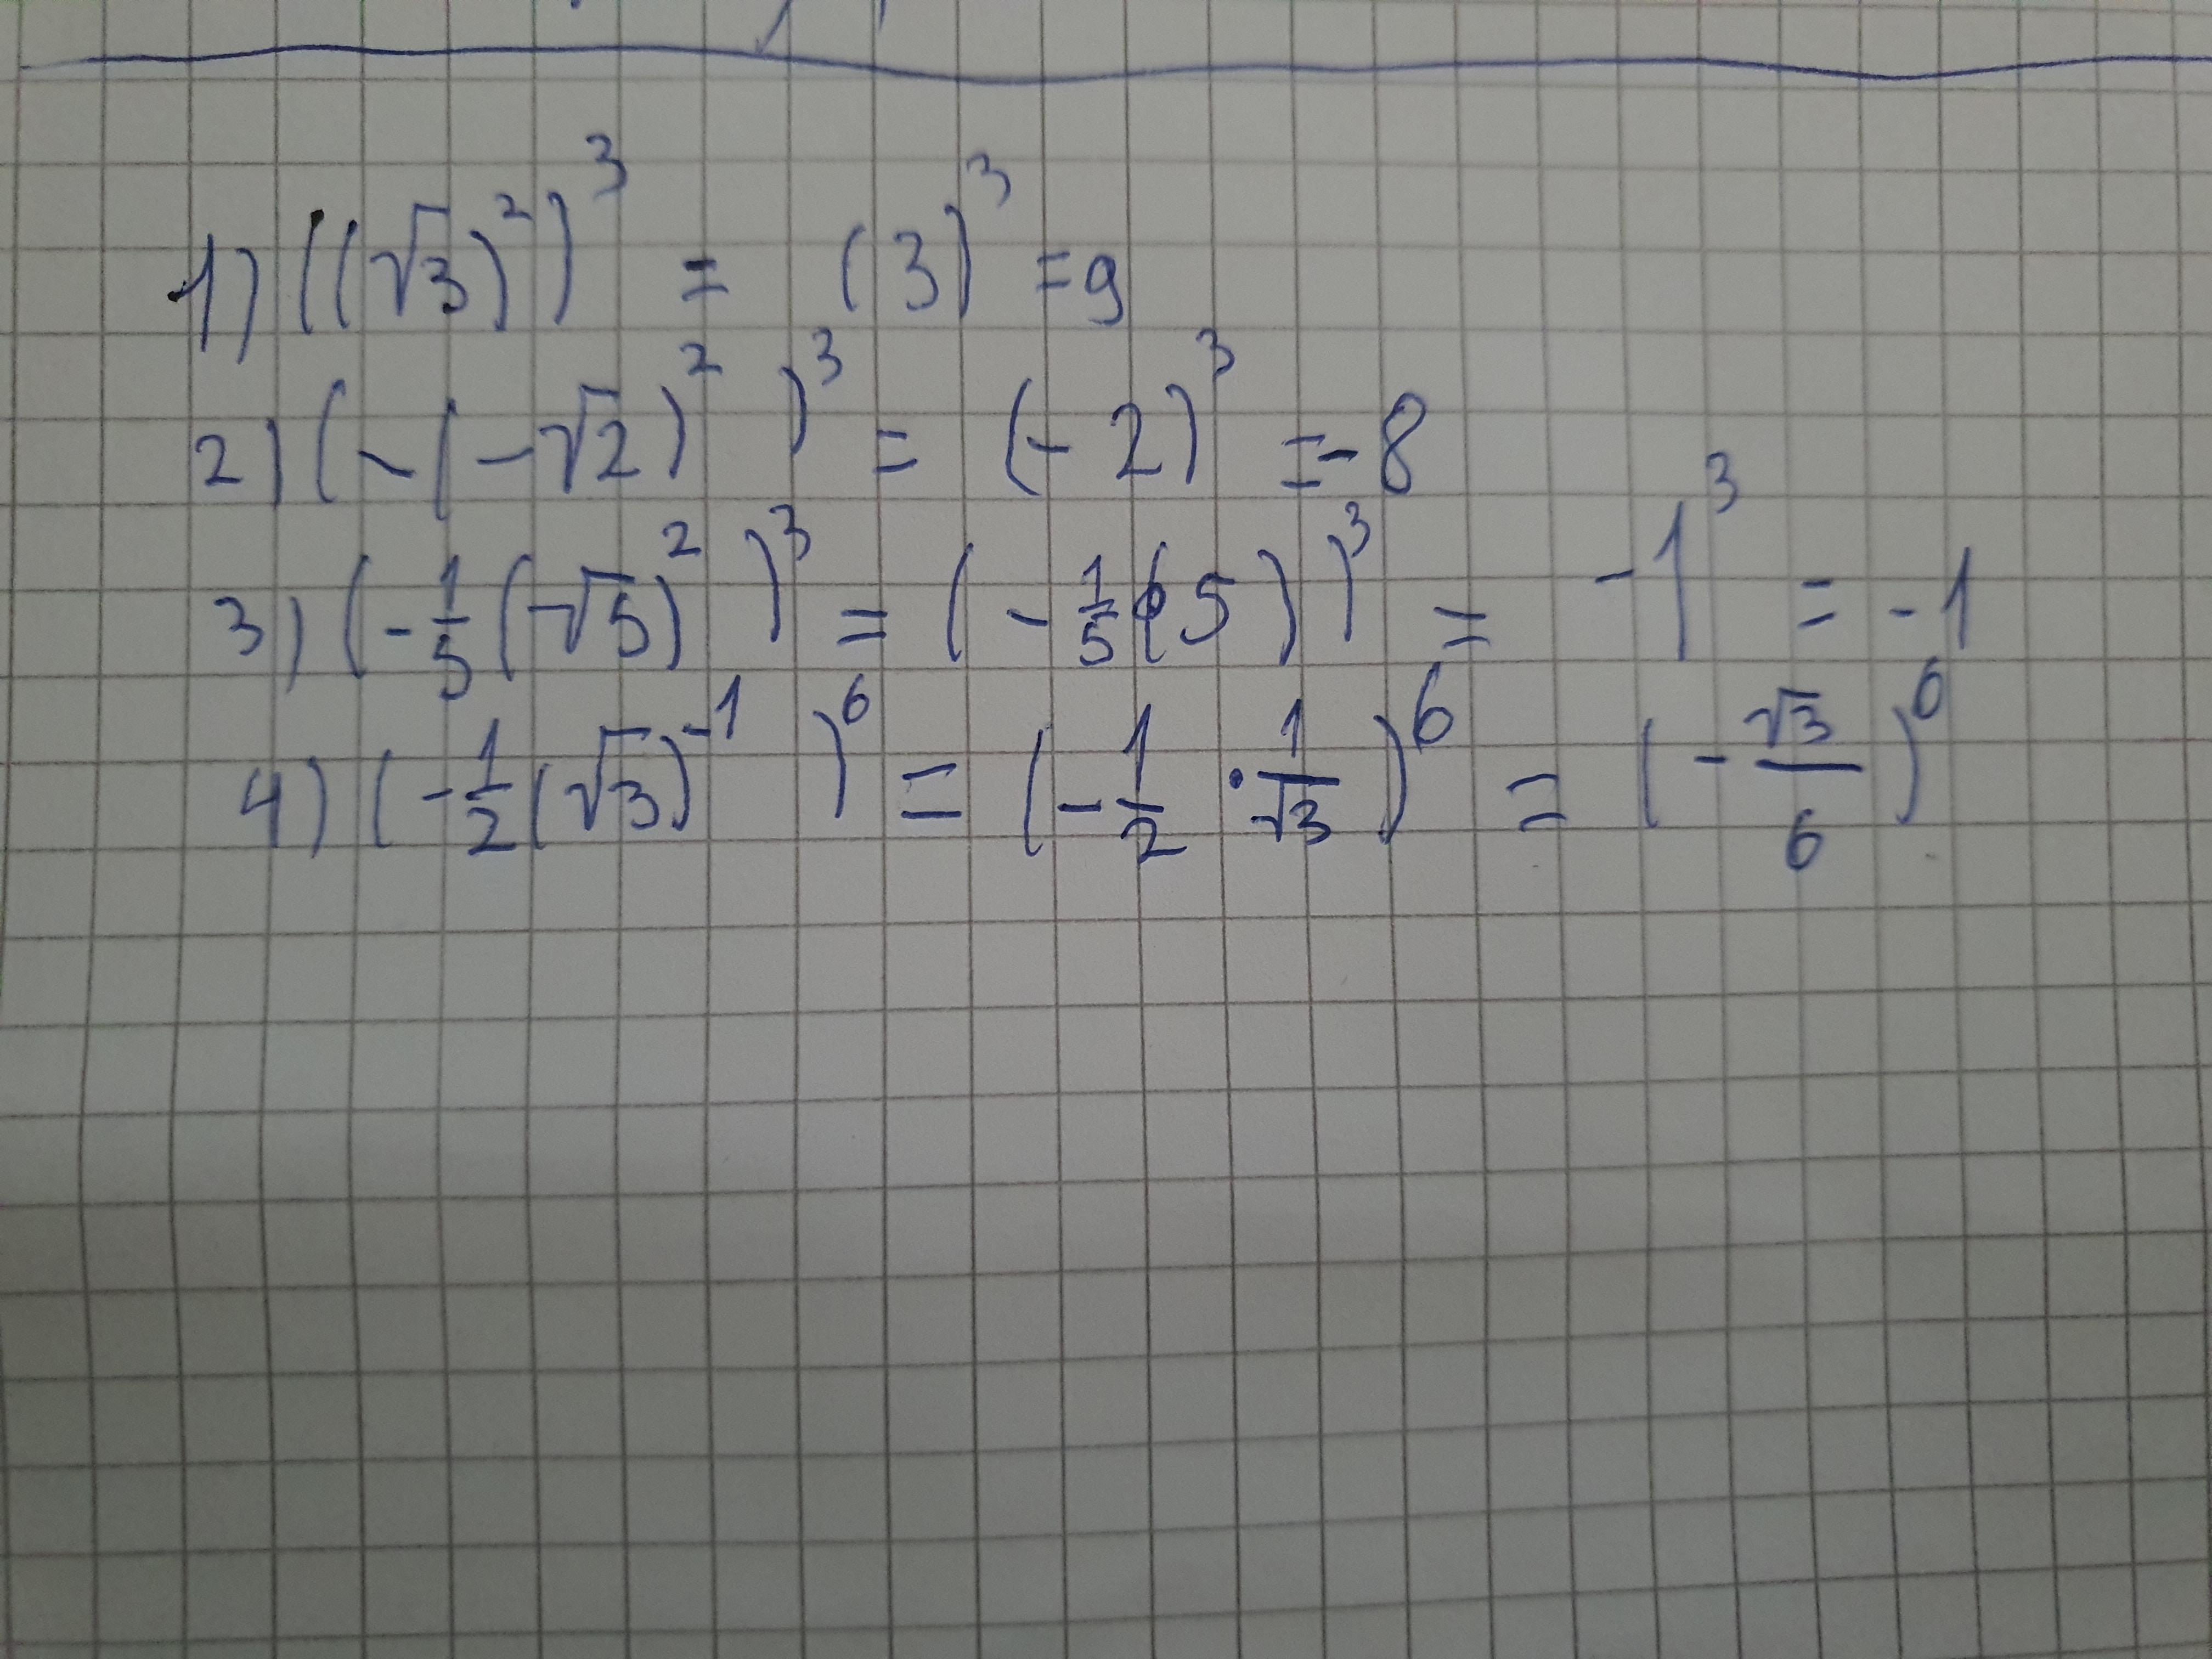 1) ((√3)²)³ = (3)³ = 9
2) (-(-√2)²)³ = (-2)³ = -8
3) (-1/5(-√5)²)³ = (-1/5(5))³ = -1³ = -1
4) (-1/2(√3)⁻¹)⁶ = (-1/2 · 1/√3)⁶ = (-√3/6)⁶